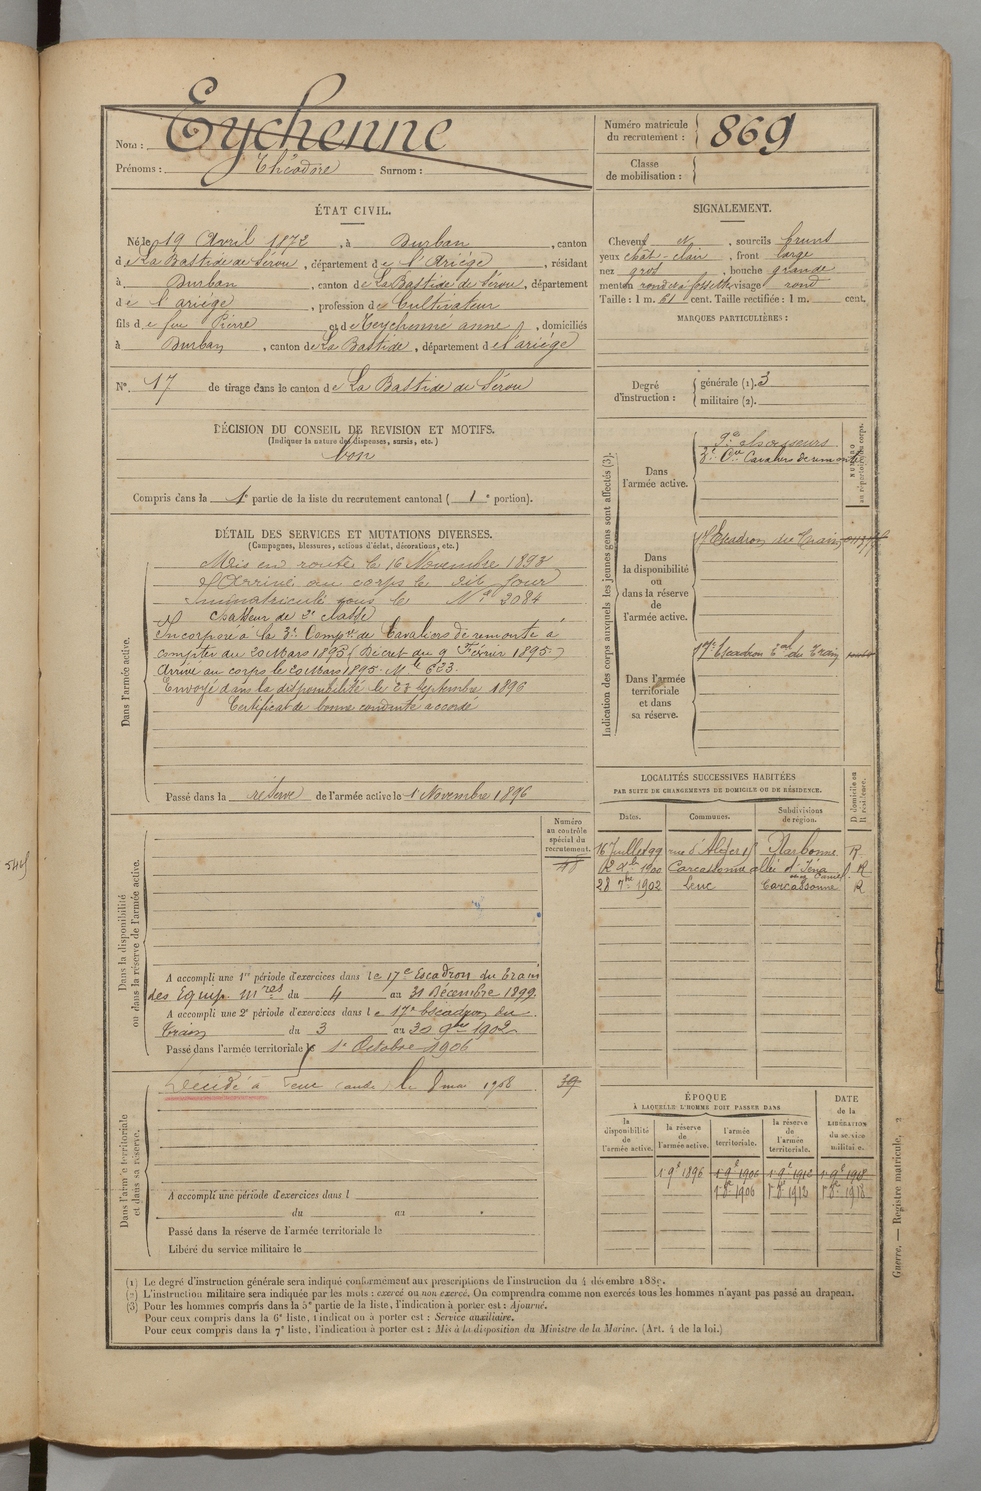 Nom : Eychenne
Prénoms : Théodore Surnom :
Numéro matricule
du recrutement : 869
Classe
de mobilisation :
ÉTAT CIVIL.
Né le 19 Avril 1872, à Durban, canton
de La Bastide de Sérou, département de l'Ariége, résidant
à Durban, canton de La Bastide de Sérou, département
de l'ariége, profession de Cultivateur
fils de feu Pierre et de Teychenné anne, domiciliés
à Durban, canton de La Bastide, département de l'ariége
N° 17 de tirage dans le canton de La Bastide de Sérou
DÉCISION DU CONSEIL DE REVISION ET MOTIFS.
(Indiquer la nature des dispenses, sursis, etc.)
bon
Compris dans la 1e partie de la liste du recrutement cantonal ( 1e portion).
SIGNALEMENT.
Cheveux, sourcils bruns
yeux chât-clair, front large
nez gros, bouche grande
menton rond et à fossette visage rond
Taille : 1 m. 61 cent. Taille rectifiée : 1 m. cent.
MARQUES PARTICULIÈRES :
Degré
d'instruction :
générale (1). 3
militaire (2).
DÉTAIL DES SERVICES ET MUTATIONS DIVERSES.
(Campagnes, blessures, actions d'éclat, décorations, etc.)
Dans l'armée active.
Mis en route le 16 Novembre 1893
Arrivé au corps le dit jour
Immatriculé sous le N° 2084
chasseur de 2e classe
Incorporé à la 3e Compie de Cavaliers de remonte à
compter du 20 Mars 1895 (Décret du 9 Février 1895)
Arrivé au corps le 20 Mars 1895. N° 623.
Envoyé dans la disponibilité le 23 Septembre 1896
Certificat de bonne conduite accordé
Passé dans la réserve de l'armée active le 1 Novembre 1896
Indication des corps auxquels les jeunes gens sont affectés (3).
NUMÉRO
au répertoire du corps.
Dans
l'armée active.
9e chasseurs
3e Cie Cavaliers de remonte
Dans
la disponibilité
ou
dans la réserve
de
l'armée active.
17e Escadron du Train
Dans l'armée
territoriale
et dans
sa réserve.
17e Escadron Tal du Train
LOCALITÉS SUCCESSIVES HABITÉES
PAR SUITE DE CHANGEMENTS DE DOMICILE OU DE RÉSIDENCE.
Dates. Communes. Subdivisions de région. D. domicile ou R. résidence.
16 Juillet 99 Narbonne R
1900 Carcassonne allée d'Iéna R
28 7bre 1902 Leuc Carcassonne R
Dans la disponibilité
ou dans la réserve de l'armée active.
Numéro
au contrôle
spécial du
recrutement.
A accompli une 1re période d'exercices dans le 17e Escadron du Train
des Equip. mres du 4 au 31 Décembre 1899.
A accompli une 2e période d'exercices dans le 17e Escadron du
Train du 3 au 30 9bre 1902
Passé dans l'armée territoriale le 1e Octobre 1906
Dans l'armée territoriale
et dans sa réserve.
Décédé à Leuc (aude) le 8 mai 1908
39
A accompli une période d'exercices dans l
du au
Passé dans la réserve de l'armée territoriale le
Libéré du service militaire le
ÉPOQUE
À LAQUELLE L'HOMME DOIT PASSER DANS
la disponibilité de l'armée active. la réserve de l'armée active. l'armée territoriale. la réserve de l'armée territoriale.
DATE de la LIBÉRATION du service militaire.
1 9e 1896 1 9e 1906 1 9e 1912 1 9e 1918
1 8e 1906 1 8e 1912 1 8e 1918
(1) Le degré d'instruction générale sera indiqué conformément aux prescriptions de l'instruction du 4 décembre 1889.
(2) L'instruction militaire sera indiquée par les mots : exercé ou non exercé. On comprendra comme non exercés tous les hommes n'ayant pas passé au drapeau.
(3) Pour les hommes compris dans la 5e partie de la liste, l'indication à porter est : Ajourné.
Pour ceux compris dans la 6e liste, l'indication à porter est : Service auxiliaire.
Pour ceux compris dans la 7e liste, l'indication à porter est : Mis à la disposition du Ministre de la Marine. (Art. 4 de la loi.)
Guerre. — Registre matricule. 2